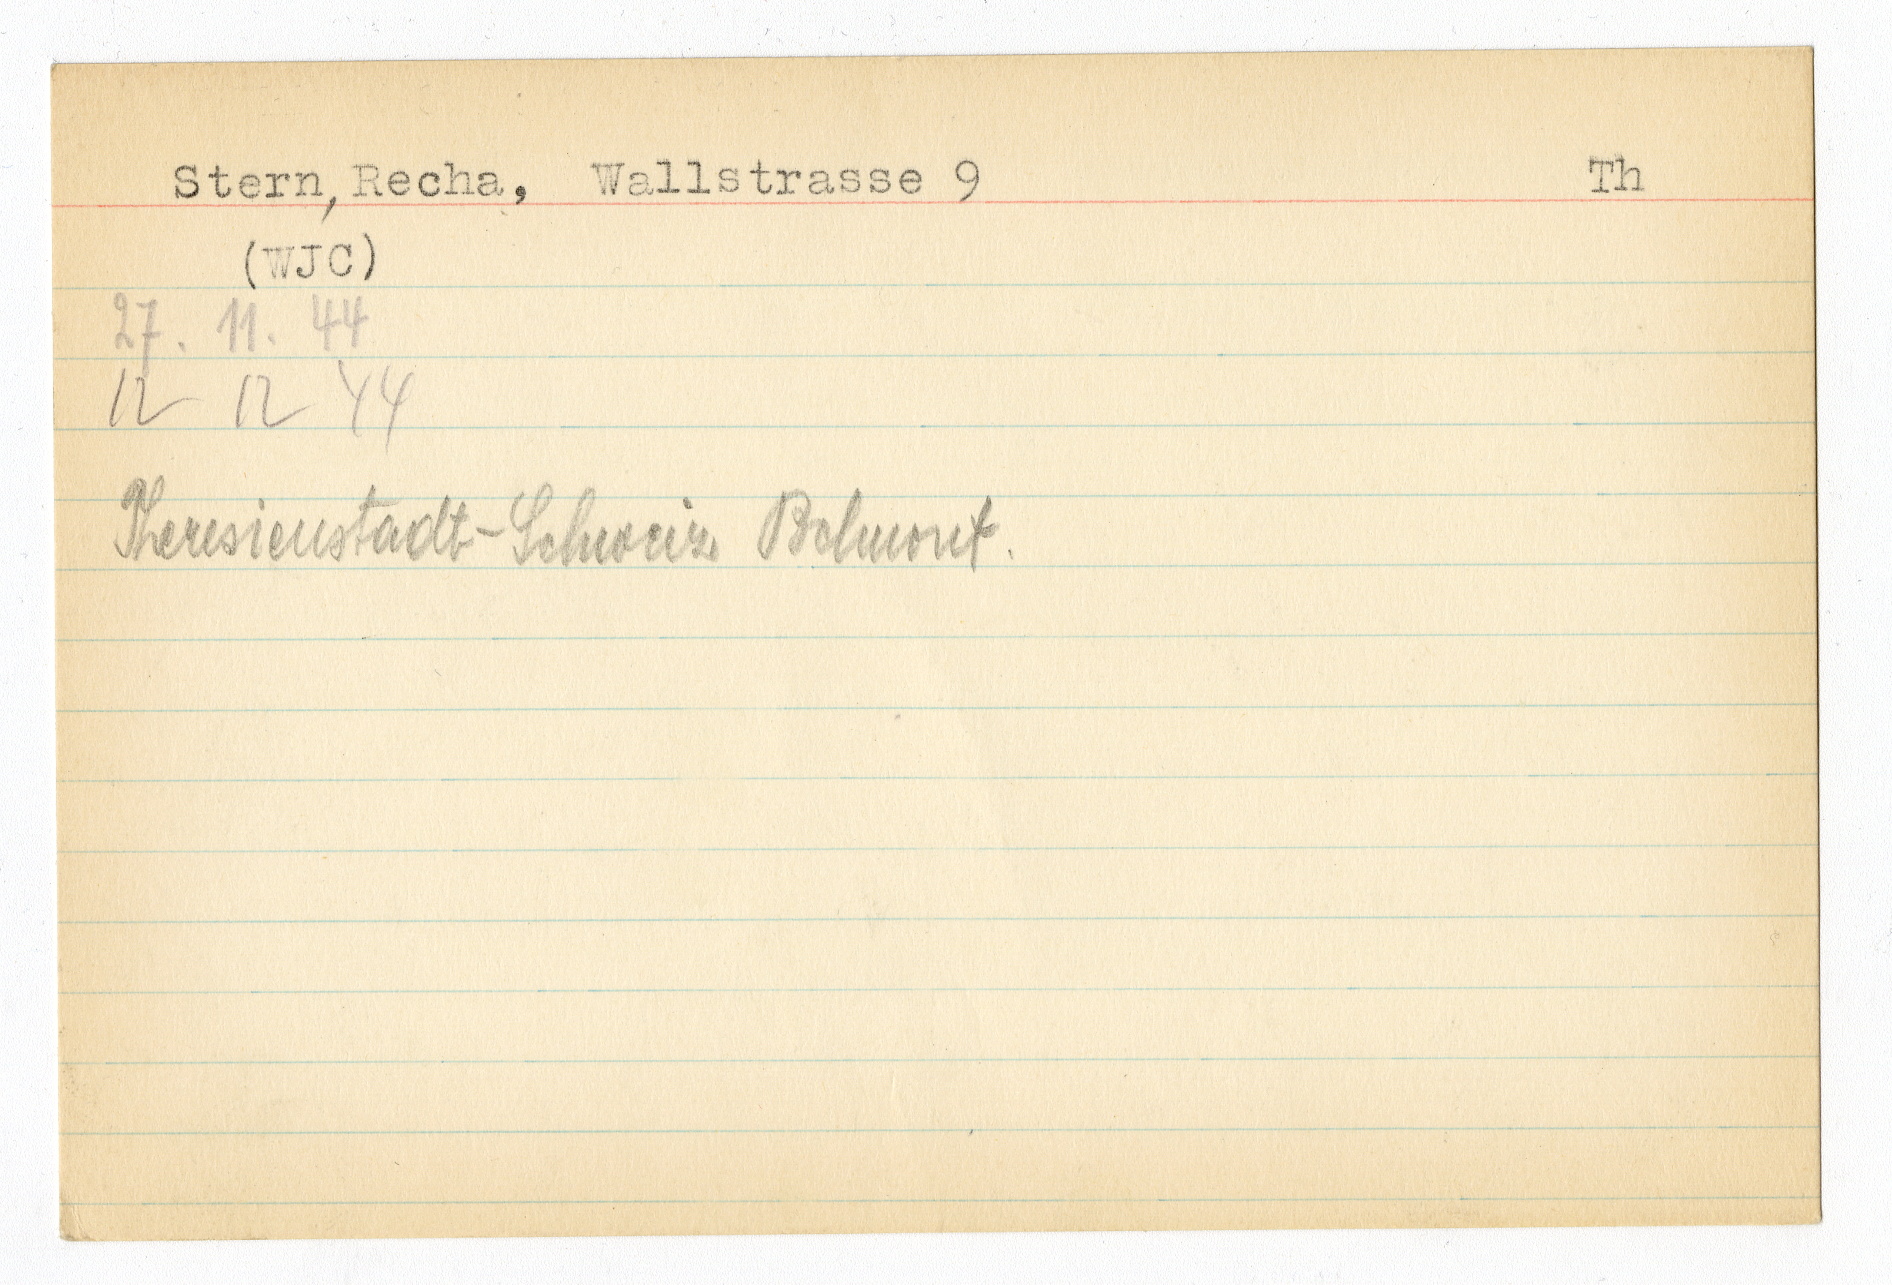 Stern, Recha, Wallstrasse 9 Th
(WJC)
27. 11. 44
12 12 44
Theresienstadt-Schweiz Belmont.